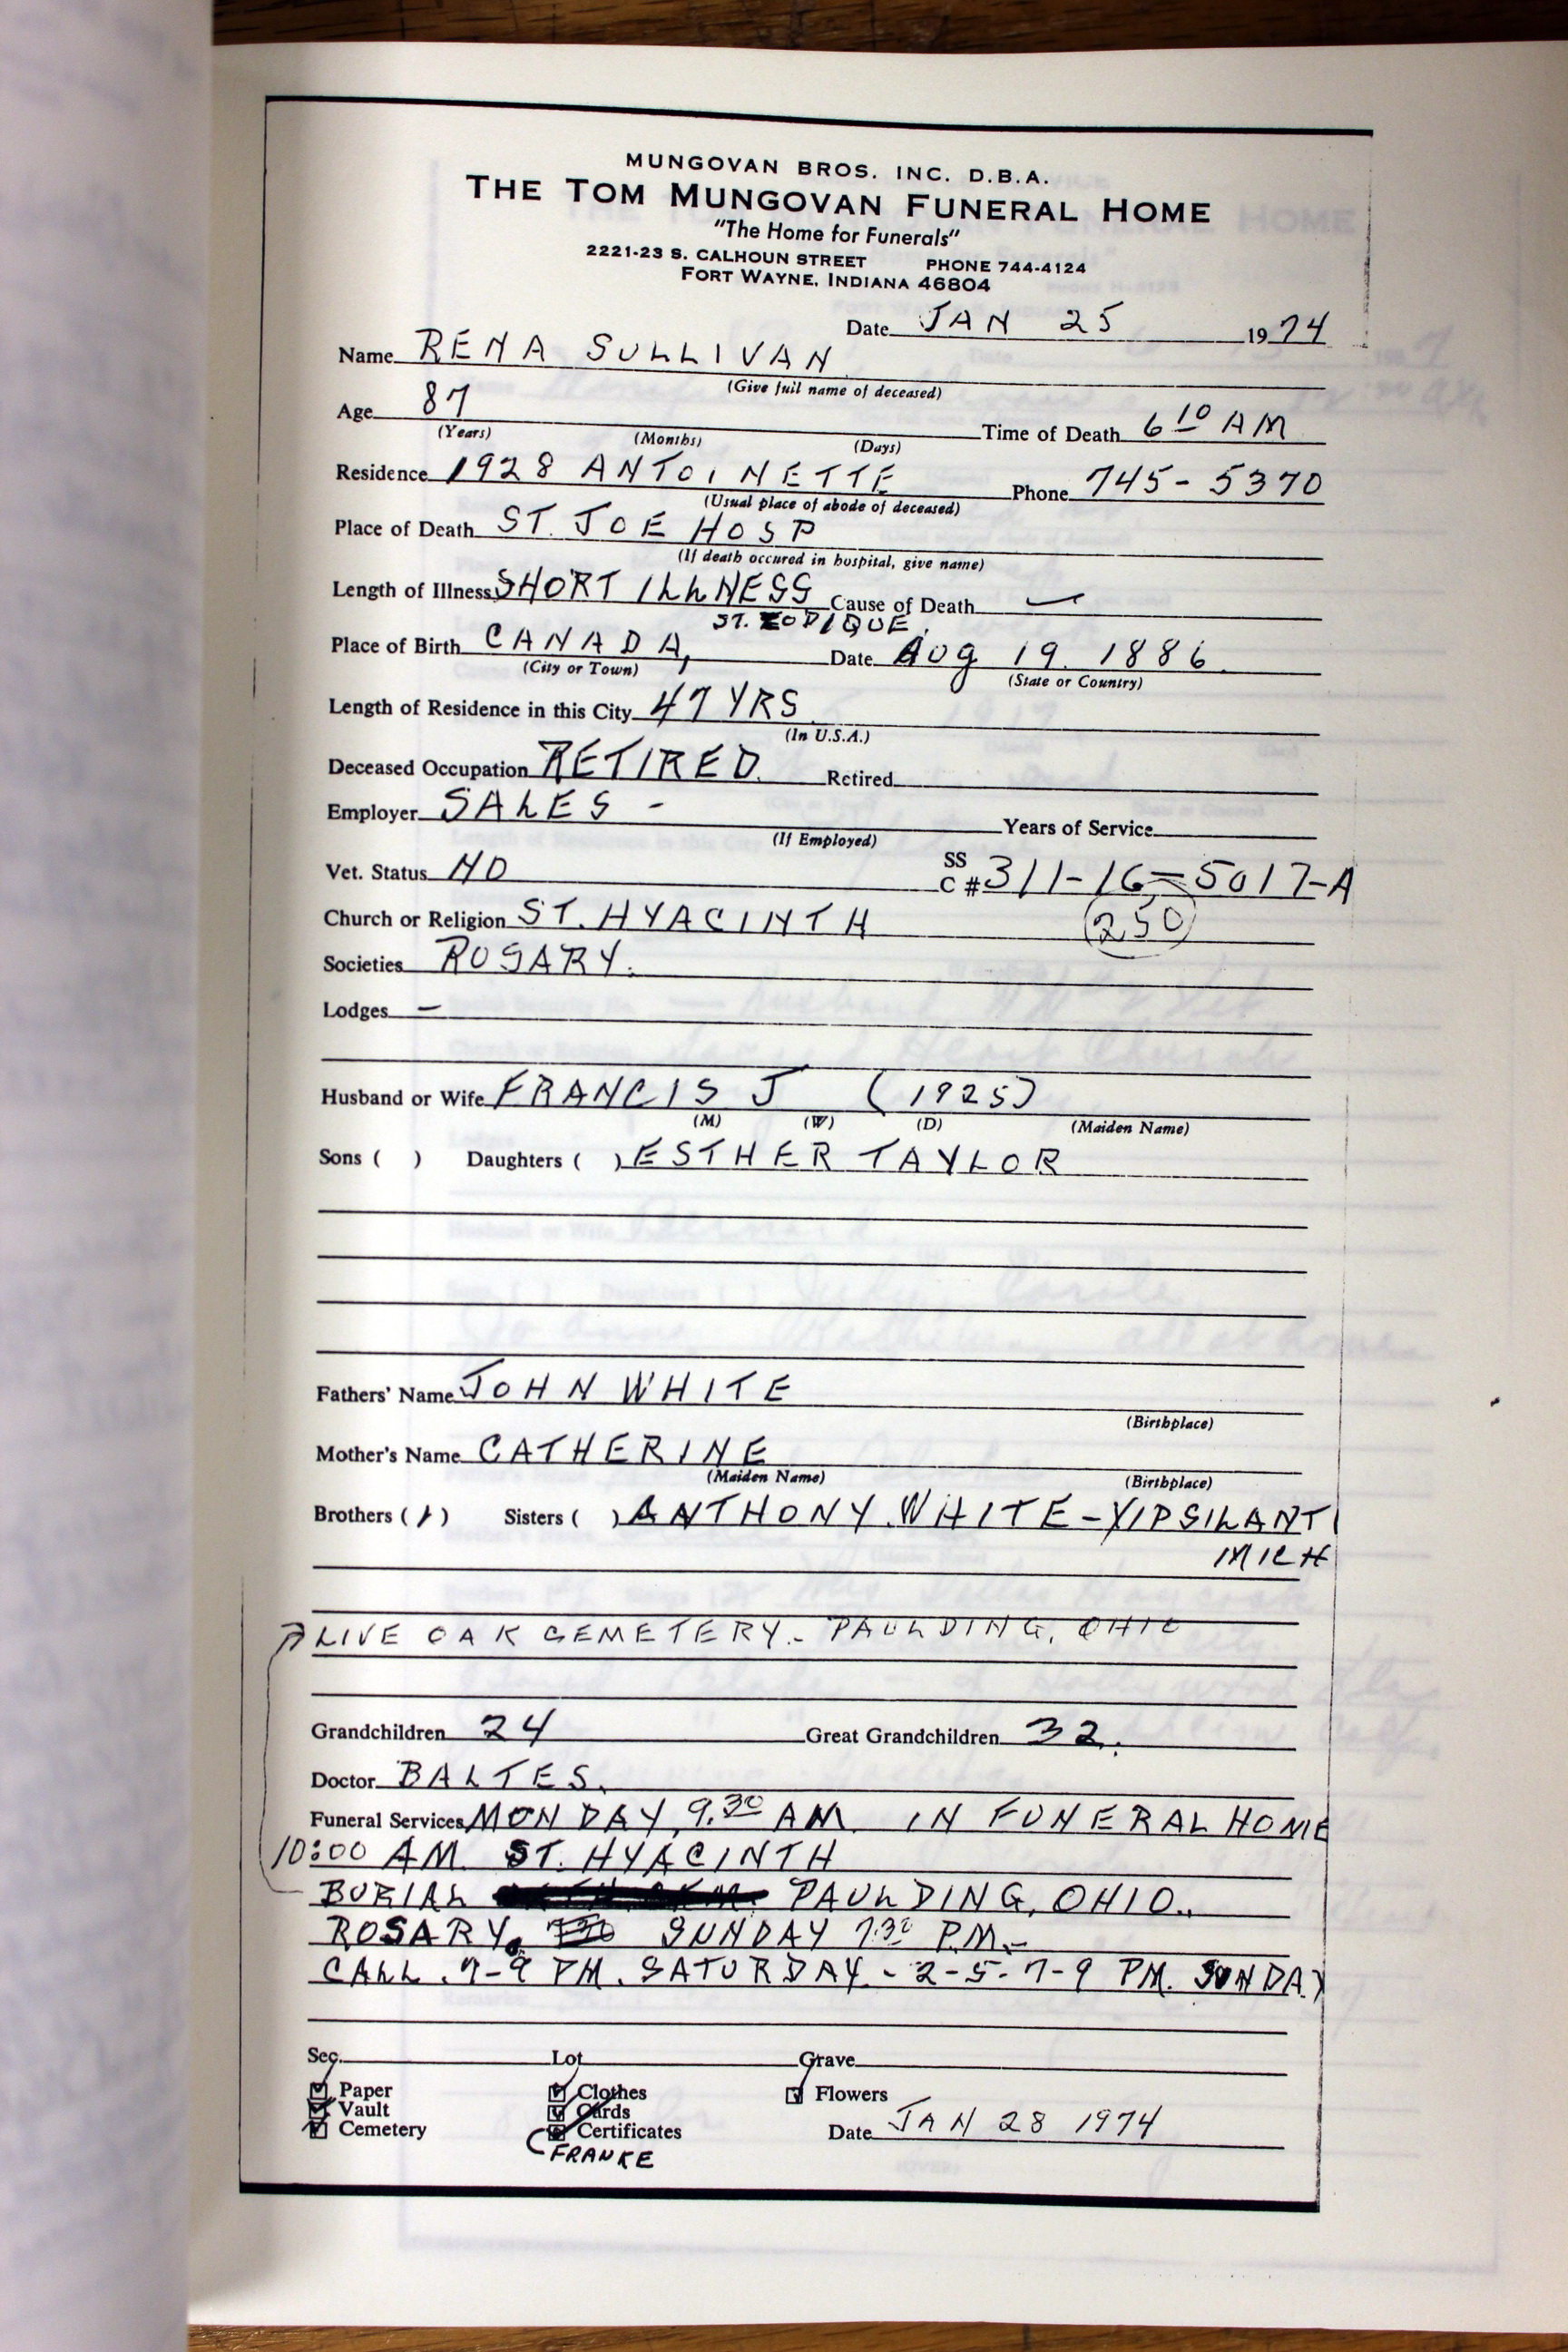 MUNGOVAN BROS. INC. D.B.A.
THE TOM MUNGOVAN FUNERAL HOME
"The Home for Funerals"
2221-23 S. CALHOUN STREET PHONE 744-4124
FORT WAYNE, INDIANA 46804
Date JAN 25 1974
Name RENA SULLIVAN
(Give full name of deceased)
Age 87 Time of Death 6 10 AM
(Years) (Months) (Days)
Residence 1928 ANTOINETTE Phone 745-5370
(Usual place of abode of deceased)
Place of Death ST. JOE HOSP
(If death occured in hospital, give name)
Length of Illness SHORT ILLNESS Cause of Death —
Place of Birth CANADA, ST. Date AUG 19. 1886
(City or Town) (State or Country)
Length of Residence in this City 47 YRS
(In U.S.A.)
Deceased Occupation RETIRED. Retired
Employer SALES - Years of Service
(If Employed)
Vet. Status NO SS C # 311-16-5017-A
Church or Religion ST. HYACINTH (250)
Societies ROSARY.
Lodges —
Husband or Wife FRANCIS J (1925)
(M) (W) (D) (Maiden Name)
Sons ( ) Daughters ( ) ESTHER TAYLOR
Fathers' Name JOHN WHITE
(Birthplace)
Mother's Name CATHERINE
(Maiden Name) (Birthplace)
Brothers (1) Sisters ( ) ANTHONY WHITE - YIPSILANTI
MICH
LIVE OAK CEMETERY - PAULDING, OHIO
Grandchildren 24 Great Grandchildren 32.
Doctor BALTES.
Funeral Services MONDAY 9.30 AM. IN FUNERAL HOME
10:00 AM. ST. HYACINTH
BURIAL PAULDING, OHIO.
ROSARY. SUNDAY 7 30 P.M.-
CALL. 7-9 PM. SATURDAY - 2-5-7-9 PM. SUNDAY
Sec. Lot Grave
Paper Clothes Flowers
Vault Cards
Cemetery Certificates Date JAN 28 1974
FRANKE